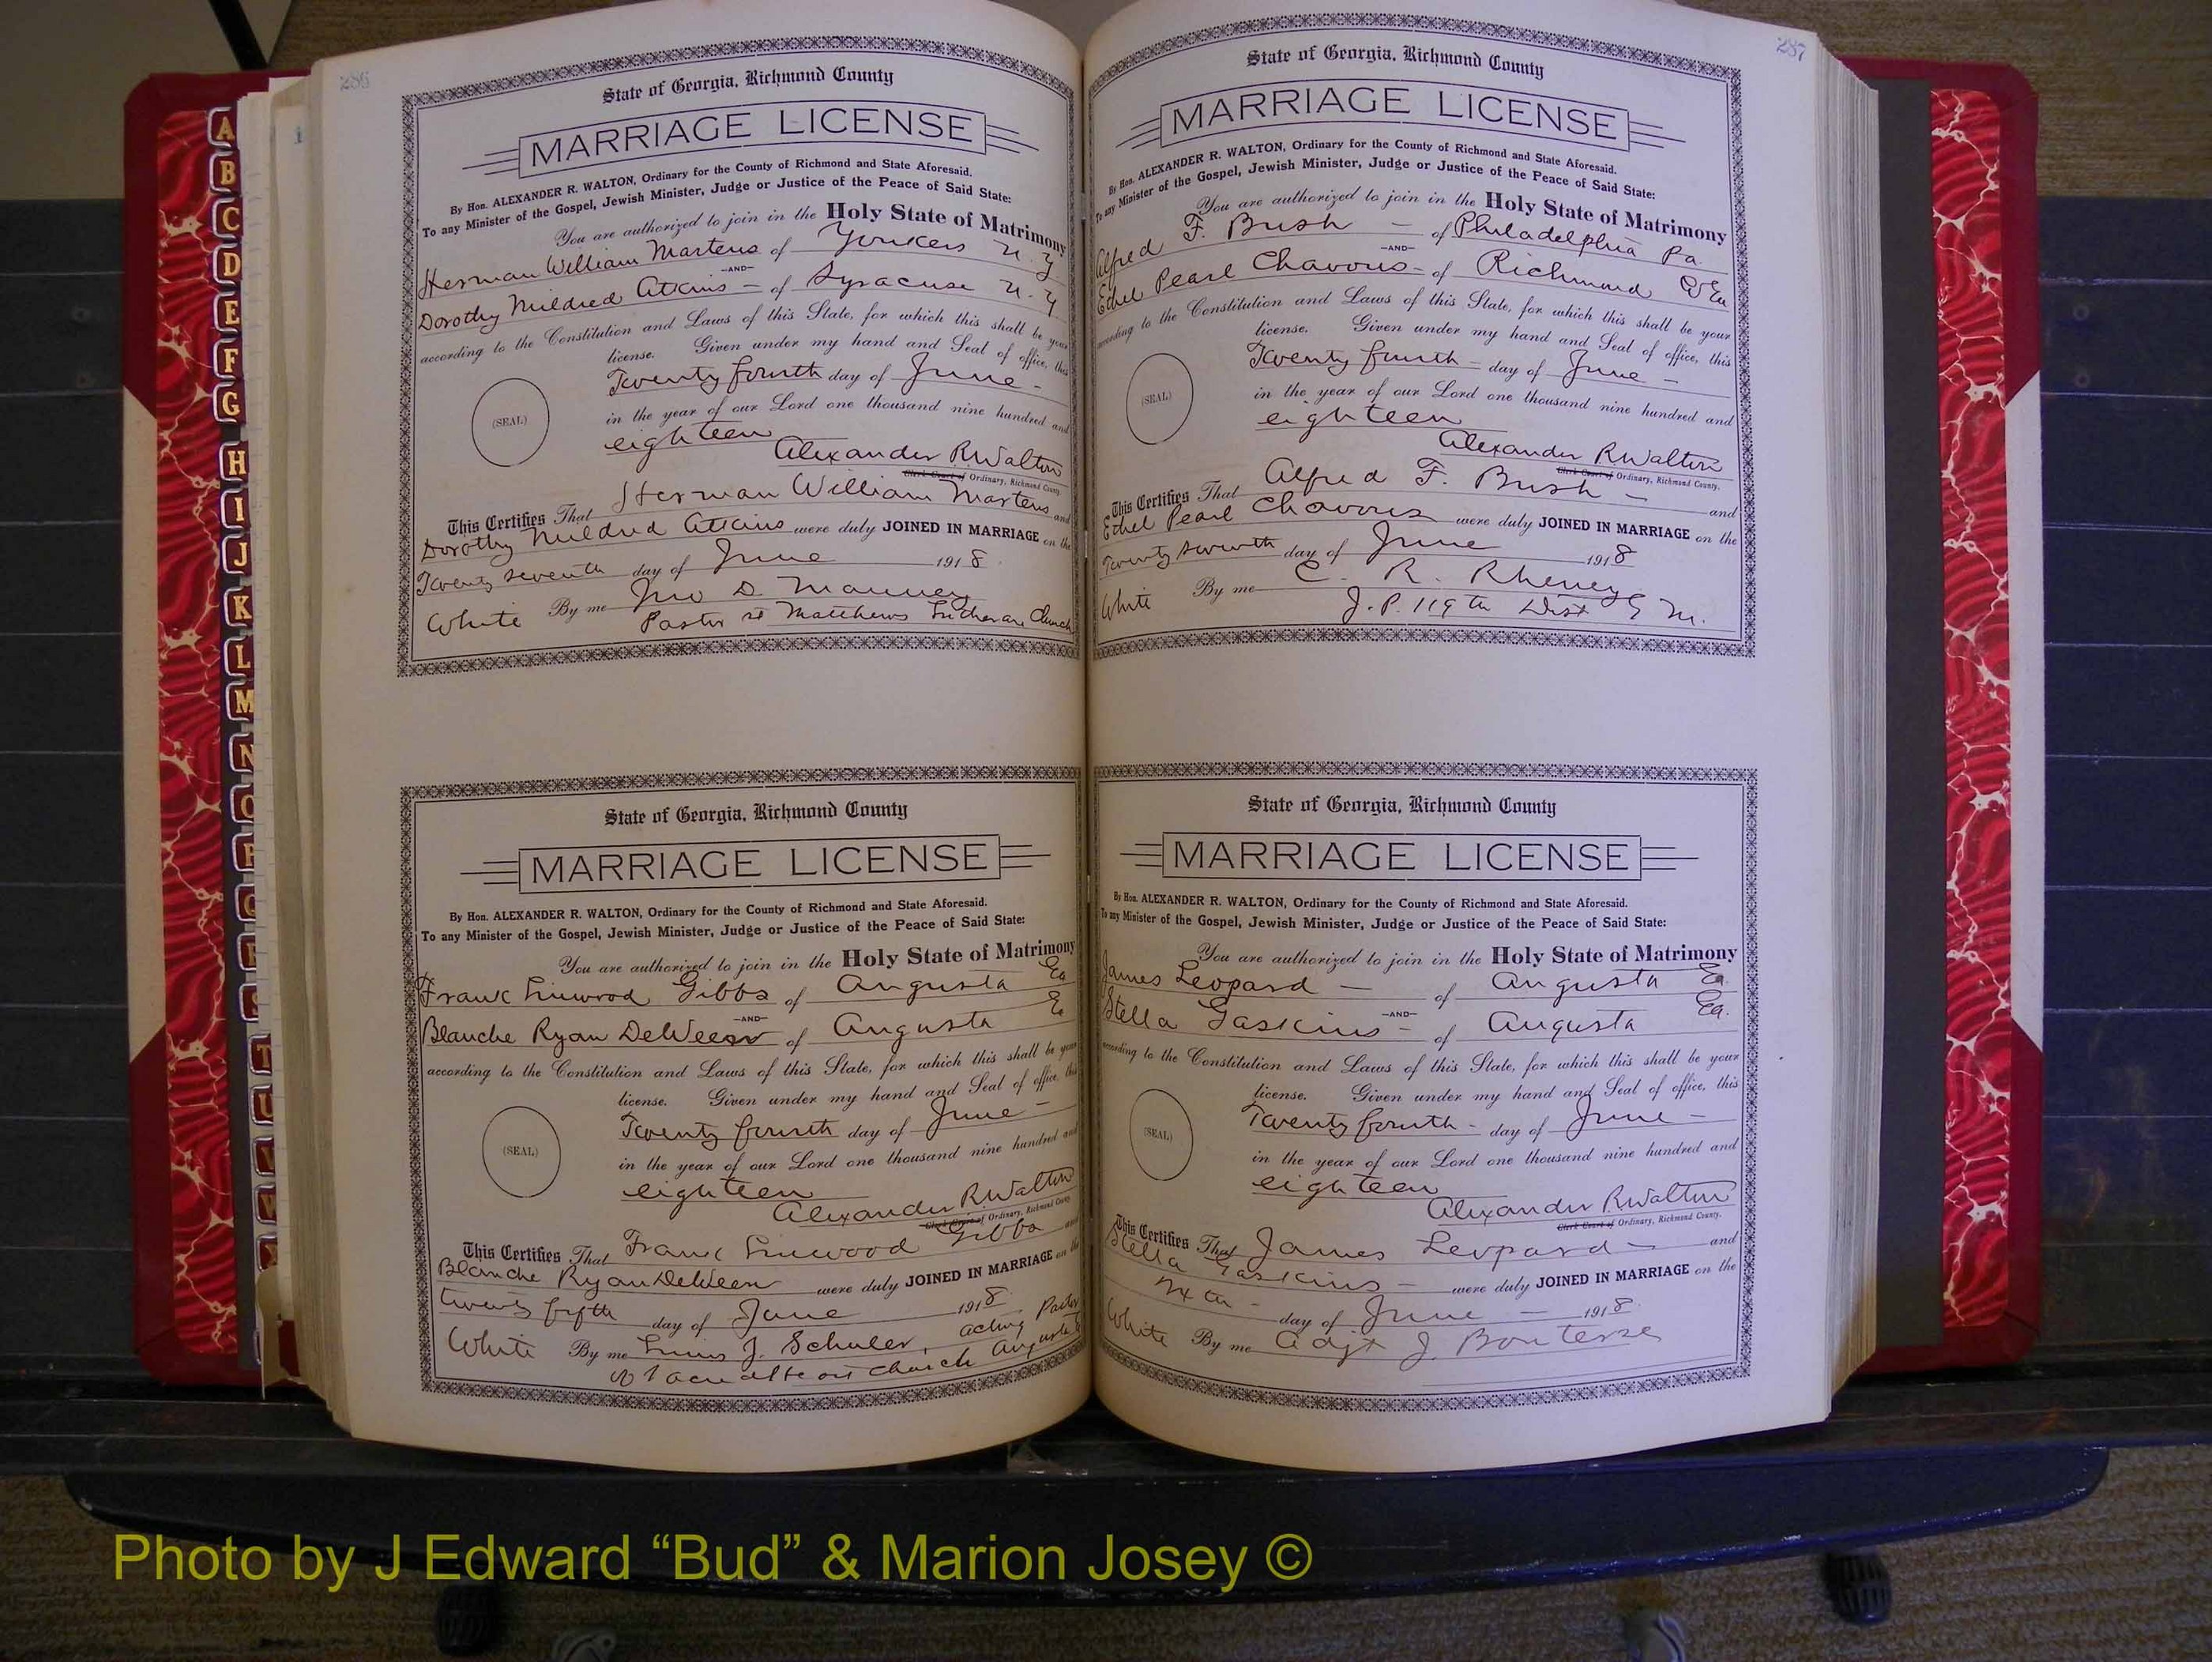 286
State of Georgia, Richmond County
MARRIAGE LICENSE
By Hon. ALEXANDER R. WALTON, Ordinary for the County of Richmond and State Aforesaid.
To any Minister of the Gospel, Jewish Minister, Judge or Justice of the Peace of Said State:
You are authorized to join in the Holy State of Matrimony
Herman William Martens of Yonkers N.Y
—AND—
Dorothy Mildred Atkins - of Syracuse N.Y
according to the Constitution and Laws of this State, for which this shall be your
license. Given under my hand and Seal of office, this
Twenty fourth day of June -
(SEAL)
in the year of our Lord one thousand nine hundred and
eighteen
Alexander R Walton
Clerk Court of Ordinary, Richmond County.
This Certifies That Herman William Martens and
Dorothy Mildred Atkins were duly JOINED IN MARRIAGE on the
Twenty seventh day of June 1918
White By me Jno D. Mauney
Pastor St Matthews Lutheran Church
State of Georgia, Richmond County
MARRIAGE LICENSE
By Hon. ALEXANDER R. WALTON, Ordinary for the County of Richmond and State Aforesaid.
To any Minister of the Gospel, Jewish Minister, Judge or Justice of the Peace of Said State:
You are authorized to join in the Holy State of Matrimony
Frank Linwood Gibbs of Augusta Ga
—AND—
Blanche Ryan of Augusta Ga
according to the Constitution and Laws of this State, for which this shall be your
license. Given under my hand and Seal of office, this
Twenty fourth day of June -
(SEAL)
in the year of our Lord one thousand nine hundred and
eighteen
Alexander R Walton
Clerk Court of Ordinary, Richmond County.
This Certifies That Frank Linwood Gibbs and
Blanche Ryan were duly JOINED IN MARRIAGE on the
twenty fifth day of June 1918
White By me Louis J. Schuler, acting Pastor
of Church Augusta
287
State of Georgia, Richmond County
MARRIAGE LICENSE
By Hon. ALEXANDER R. WALTON, Ordinary for the County of Richmond and State Aforesaid.
To any Minister of the Gospel, Jewish Minister, Judge or Justice of the Peace of Said State:
You are authorized to join in the Holy State of Matrimony
Alfred F. Bush - of Philadelphia Pa
—AND—
Ethel Pearl Chavous - of Richmond Co Ga
according to the Constitution and Laws of this State, for which this shall be your
license. Given under my hand and Seal of office, this
Twenty fourth - day of June -
(SEAL)
in the year of our Lord one thousand nine hundred and
eighteen
Alexander R Walton
Clerk Court of Ordinary, Richmond County.
This Certifies That Alfred F. Bush - and
Ethel Pearl Chavous were duly JOINED IN MARRIAGE on the
Twenty seventh day of June 1918
White By me C. R. Rheney
J.P. 119th Dist G M.
State of Georgia, Richmond County
MARRIAGE LICENSE
By Hon. ALEXANDER R. WALTON, Ordinary for the County of Richmond and State Aforesaid.
To any Minister of the Gospel, Jewish Minister, Judge or Justice of the Peace of Said State:
You are authorized to join in the Holy State of Matrimony
James Leopard - of Augusta Ga
—AND—
Stella Gaskins - of Augusta Ga.
according to the Constitution and Laws of this State, for which this shall be your
license. Given under my hand and Seal of office, this
Twenty fourth - day of June -
(SEAL)
in the year of our Lord one thousand nine hundred and
eighteen
Alexander R Walton
Clerk Court of Ordinary, Richmond County.
This Certifies That James Leopard - and
Stella Gaskins - were duly JOINED IN MARRIAGE on the
day of June - 1918
White By me Adjt J. Bouterse
A
B
C
D
E
F
G
H
I
J
K
L
M
N
O
P
Q
R
S
T
U
V
W
Photo by J Edward “Bud” & Marion Josey ©